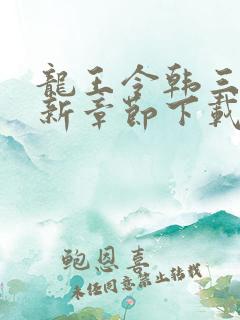 龍王令韩三
新章節下載
鲍恩喜
未经同意禁止转载